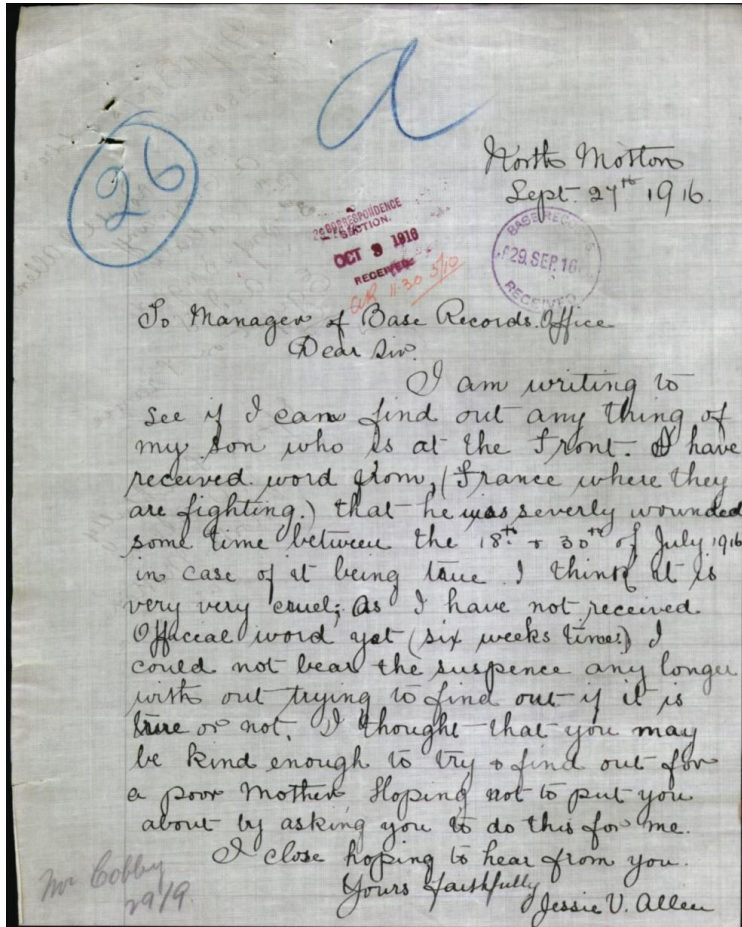 a
26
North Motton
Sept. 27th 1916.
CORRESPONDENCE
SECTION.
OCT 3 1916
RECEIVED
11.30 5/10
BASE RECORDS
29. SEP. 16
RECEIVED
To Manager of Base Records. Office
Dear Sir.
I am writing to
see if I can find out any thing of
my son who is at the Front. I have
received word from, (France where they
are fighting.) that he was severly wounded
some time between the 18th + 30th of July 1916
in case of it being true I think it is
very very cruel; as I have not received
Official word yet (six weeks time.) I
could not bear the suspence any longer
with out trying to find out if it is
true or not. I thought that you may
be kind enough to try & find out for
a poor Mother. Hoping not to put you
about by asking you to do this for me.
I close hoping to hear from you.
Yours faithfully
Jessie V. Allen
Mr Cobby
29/9